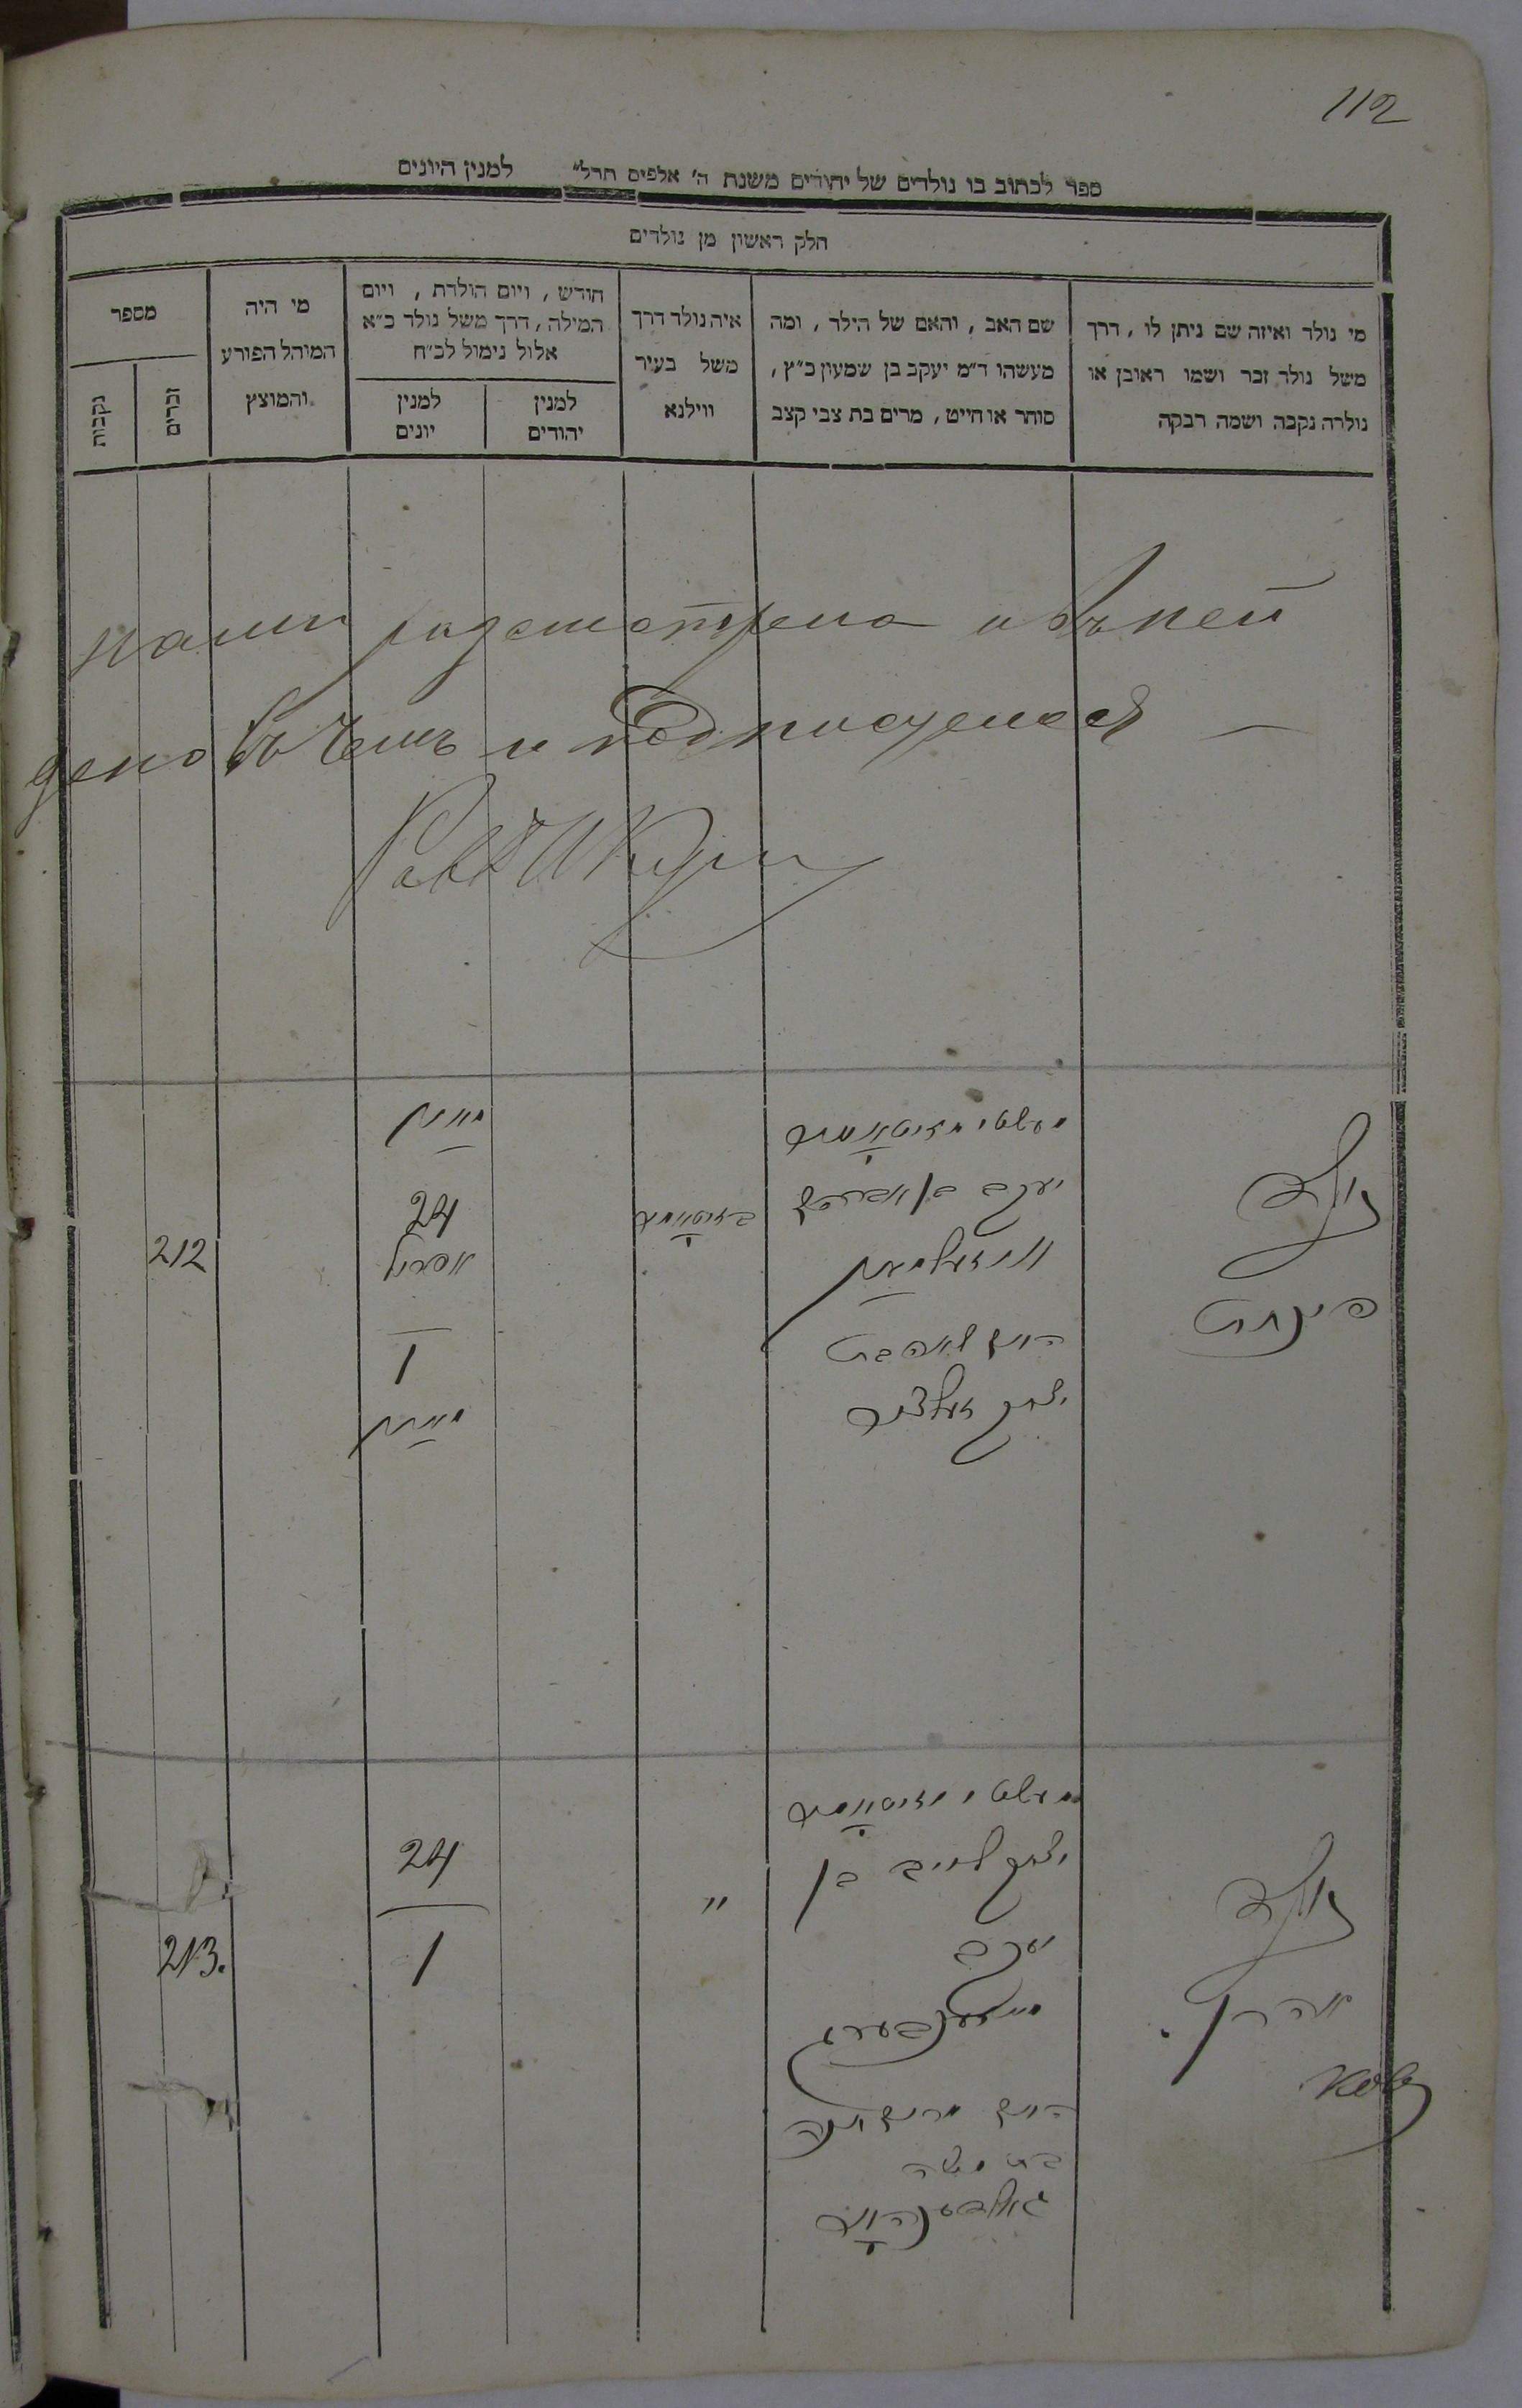 112
ספר לכתוב בו נולדים של יהודים משנת ה' אלפים תרל" למנין היונים
חלק ראשון מן נולדים
מי נולד ואיזה שם ניתן לו, דרך
משל נולד זכר ושמו ראובן או
נולדה נקבה ושמה רבקה
שם האב, והאם של הילד, ומה
מעשהו ד"מ יעקב בן שמעון כ"ץ,
סוחר או חייט, מרים בת צבי קצב
איה נולד דרך
משל בעיר
ווילנא
חודש, ויום הולדת, ויום
המילה, דרך משל נולד כ"א
אלול נימול לכ"ח
למנין
יהודים
למנין
יונים
מי היה
המוהל הפורע
והמוצץ
מספר
זכרים
נקבות
нами разсмотрена и въ ней
въ чемъ и подписуемся
נולד
פינחס
יעקב בן אברהם
האם לאה בת
יצחק
24
אפריל
1
212
נולד
אהרן.
יצחק לייב בן
יעקב
האם
בת משה
"
24
1
213.